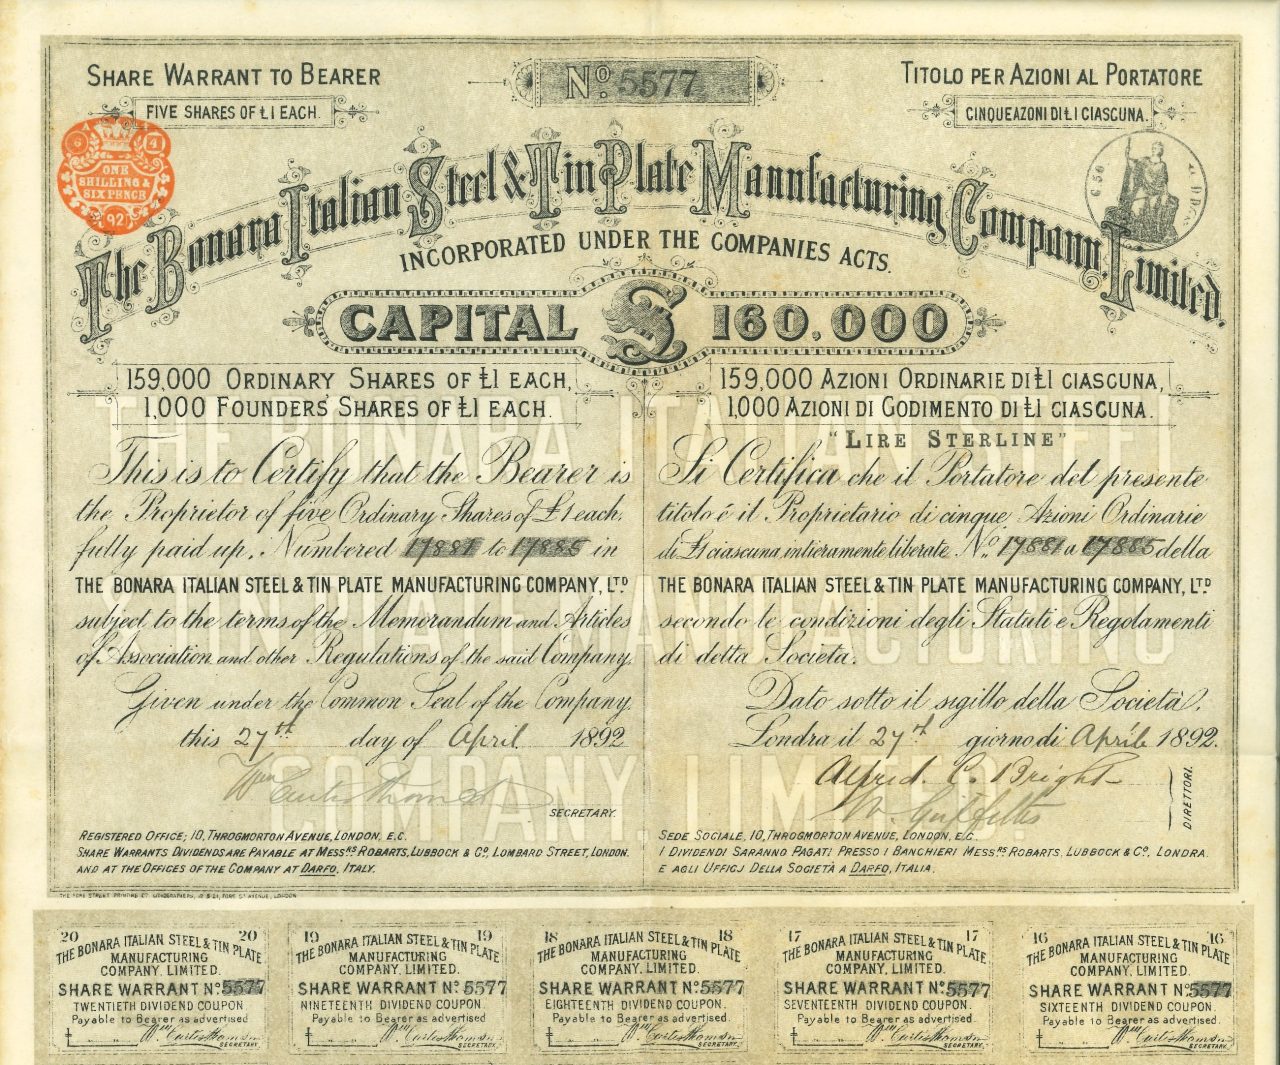 SHARE WARRANT TO BEARER
FIVE SHARES OF £1 EACH.
Nº 5577
TITOLO PER AZIONI AL PORTATORE
CINQUE AZONI DI £1 CIASCUNA.
ONE
SHILLING &
SIX PENCE
92
The Bonara Italian Steel & Tin Plate Manufacturing Company, Limited.
INCORPORATED UNDER THE COMPANIES ACTS.
CAPITAL £ 160,000
159,000 ORDINARY SHARES OF £1 EACH,
1,000 FOUNDERS' SHARES OF £1 EACH.
159,000 AZIONI ORDINARIE DI £1 CIASCUNA,
1,000 AZIONI DI GODIMENTO DI £1 CIASCUNA.
"LIRE STERLINE"
This is to Certify that the Bearer is
the Proprietor of five Ordinary Shares of £1 each,
fully paid up. Numbered 17881 to 17885 in
THE BONARA ITALIAN STEEL & TIN PLATE MANUFACTURING COMPANY, LTD
subject to the terms of the Memorandum and Articles
of Association and other Regulations of the said Company.
Given under the Common Seal of the Company
this 27th day of April 1892
Wm Curtis Thomson
SECRETARY.
REGISTERED OFFICE; 10, THROGMORTON AVENUE, LONDON, E.C.
SHARE WARRANTS DIVIDENDS ARE PAYABLE AT MESSRS ROBARTS, LUBBOCK & CO, LOMBARD STREET, LONDON.
AND AT THE OFFICES OF THE COMPANY AT DARFO, ITALY.
Si Certifica che il Portatore del presente
titolo é il Proprietario di cinque Azioni Ordinarie
di £1 ciascuna intieramente liberate No 17881 a 17885 della
THE BONARA ITALIAN STEEL & TIN PLATE MANUFACTURING COMPANY, LTD
secondo le condizioni degli Statuti e Regolamenti
di detta Societa.
Dato sotto il sigillo della Società,
Londra il 27th giorno di Aprile 1892.
Alfred. C. Bright
W. Griffiths
DIRETTORI.
SEDE SOCIALE, 10, THROGMORTON AVENUE, LONDON, E.C.
I DIVIDENDI SARANNO PAGATI PRESSO I BANCHIERI MESSRS ROBARTS, LUBBOCK & CO, LONDRA
E AGLI UFFICJ DELLA SOCIETÀ A DARFO, ITALIA.
THE BONARA ITALIAN STEEL
& TIN PLATE MANUFACTURING
COMPANY, LIMITED.
20 20
THE BONARA ITALIAN STEEL & TIN PLATE
MANUFACTURING
COMPANY, LIMITED.
SHARE WARRANT Nº 5577
TWENTIETH DIVIDEND COUPON.
Payable to Bearer as advertised
£ Wm Curtis Thomson
SECRETARY.
19 19
THE BONARA ITALIAN STEEL & TIN PLATE
MANUFACTURING
COMPANY, LIMITED.
SHARE WARRANT Nº 5577
NINETEENTH DIVIDEND COUPON.
Payable to Bearer as advertised.
£ Wm Curtis Thomson
SECRETARY.
18 18
THE BONARA ITALIAN STEEL & TIN PLATE
MANUFACTURING
COMPANY, LIMITED.
SHARE WARRANT Nº 5577
EIGHTEENTH DIVIDEND COUPON.
Payable to Bearer as advertised.
£ Wm Curtis Thomson
SECRETARY.
17 17
THE BONARA ITALIAN STEEL & TIN PLATE
MANUFACTURING
COMPANY, LIMITED.
SHARE WARRANT Nº 5577
SEVENTEENTH DIVIDEND COUPON.
Payable to Bearer as advertised.
£ Wm Curtis Thomson
SECRETARY.
16 16
THE BONARA ITALIAN STEEL & TIN PLATE
MANUFACTURING
COMPANY, LIMITED.
SHARE WARRANT Nº 5577
SIXTEENTH DIVIDEND COUPON.
Payable to Bearer as advertised.
£ Wm Curtis Thomson
SECRETARY.